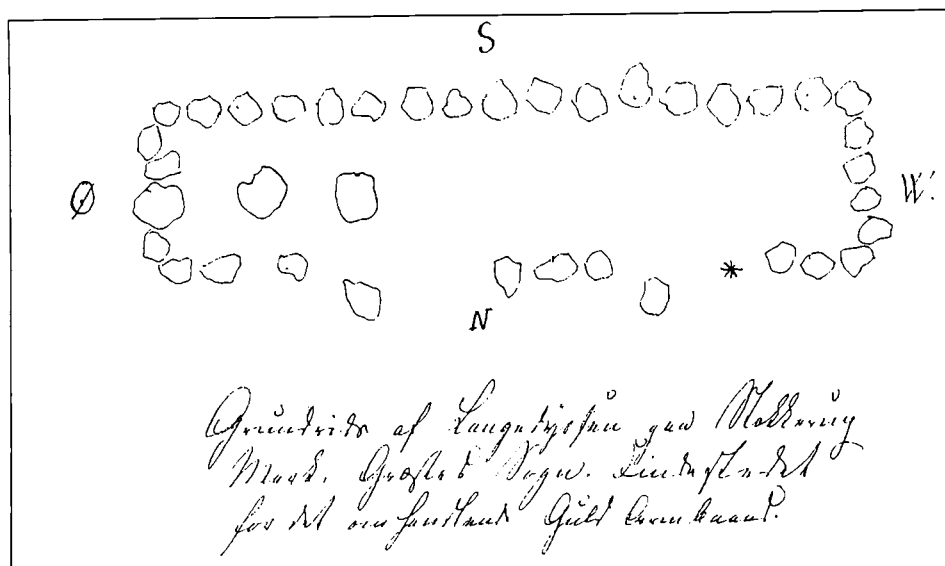 S
Ø
W.
N
Grundrids af Langedyssen paa Stokkerup
Mark. Græsted Sogn. Findestedet
for det omhandlende Guld Armbaand.